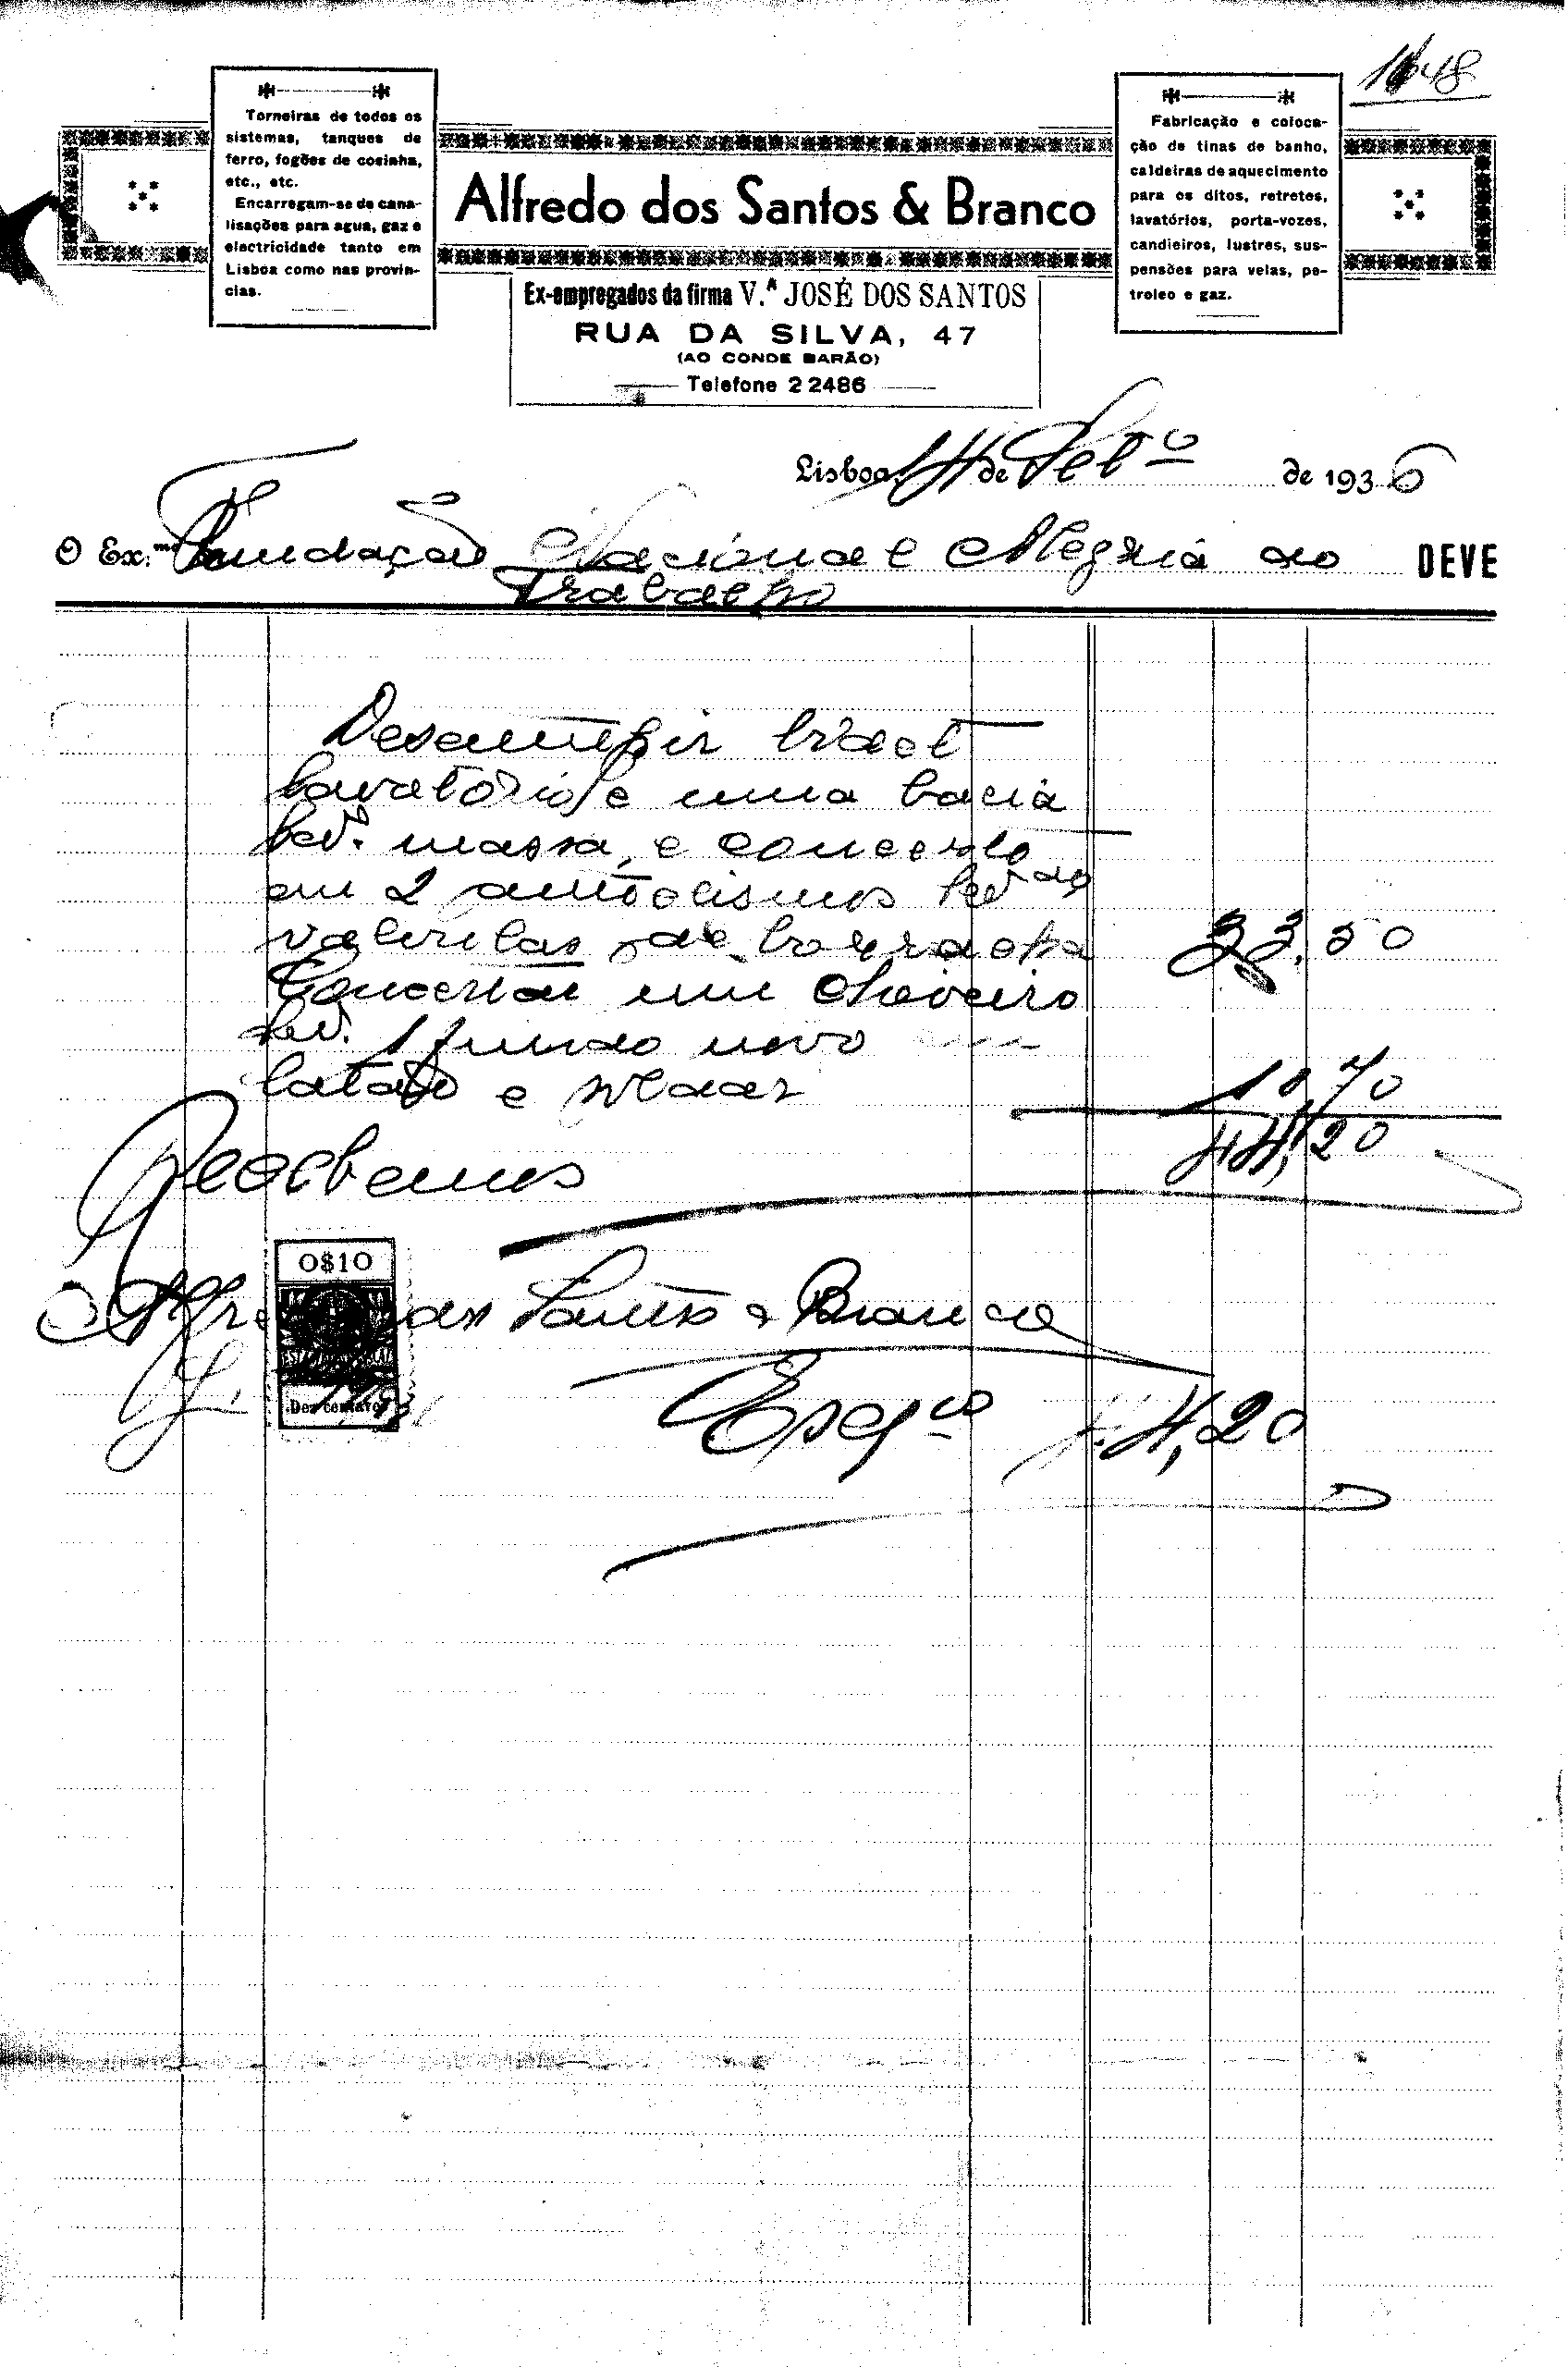 1648
Torneiras de todos os
sistemas, tanques de
ferro, fogões de cosinha,
etc., etc.
Encarregam-se de cana-
lisações para agua, gaz e
electricidade tanto em
Lisboa como nas provin-
cias.
Alfredo dos Santos & Branco
Ex-empregados da firma V.ª JOSÉ DOS SANTOS
RUA DA SILVA, 47
(AO CONDE BARÃO)
Telefone 2 2486
Fabricação e coloca-
ção de tinas de banho,
caldeiras de aquecimento
para os ditos, retretes,
lavatórios, porta-vozes,
candieiros, lustres, sus-
pensões para velas, pe-
troleo e gaz.
Lisboa 14 de Feb.º de 1936
O Ex.mo Fundação Nacional Alegria ao DEVE
Trabalho
Desentupir
lavatórios e uma bacia
lev. massa, e concerto
em 2 autoclismos lev.
valvulas de borracha 33,50
Concertar um chuveiro
lev. 1 fundo novo
latão e soldar 10,70
44,20
Recebemos
0$10
Alfredo dos Santos & Branco
Dez centavos
Esc. 44,20